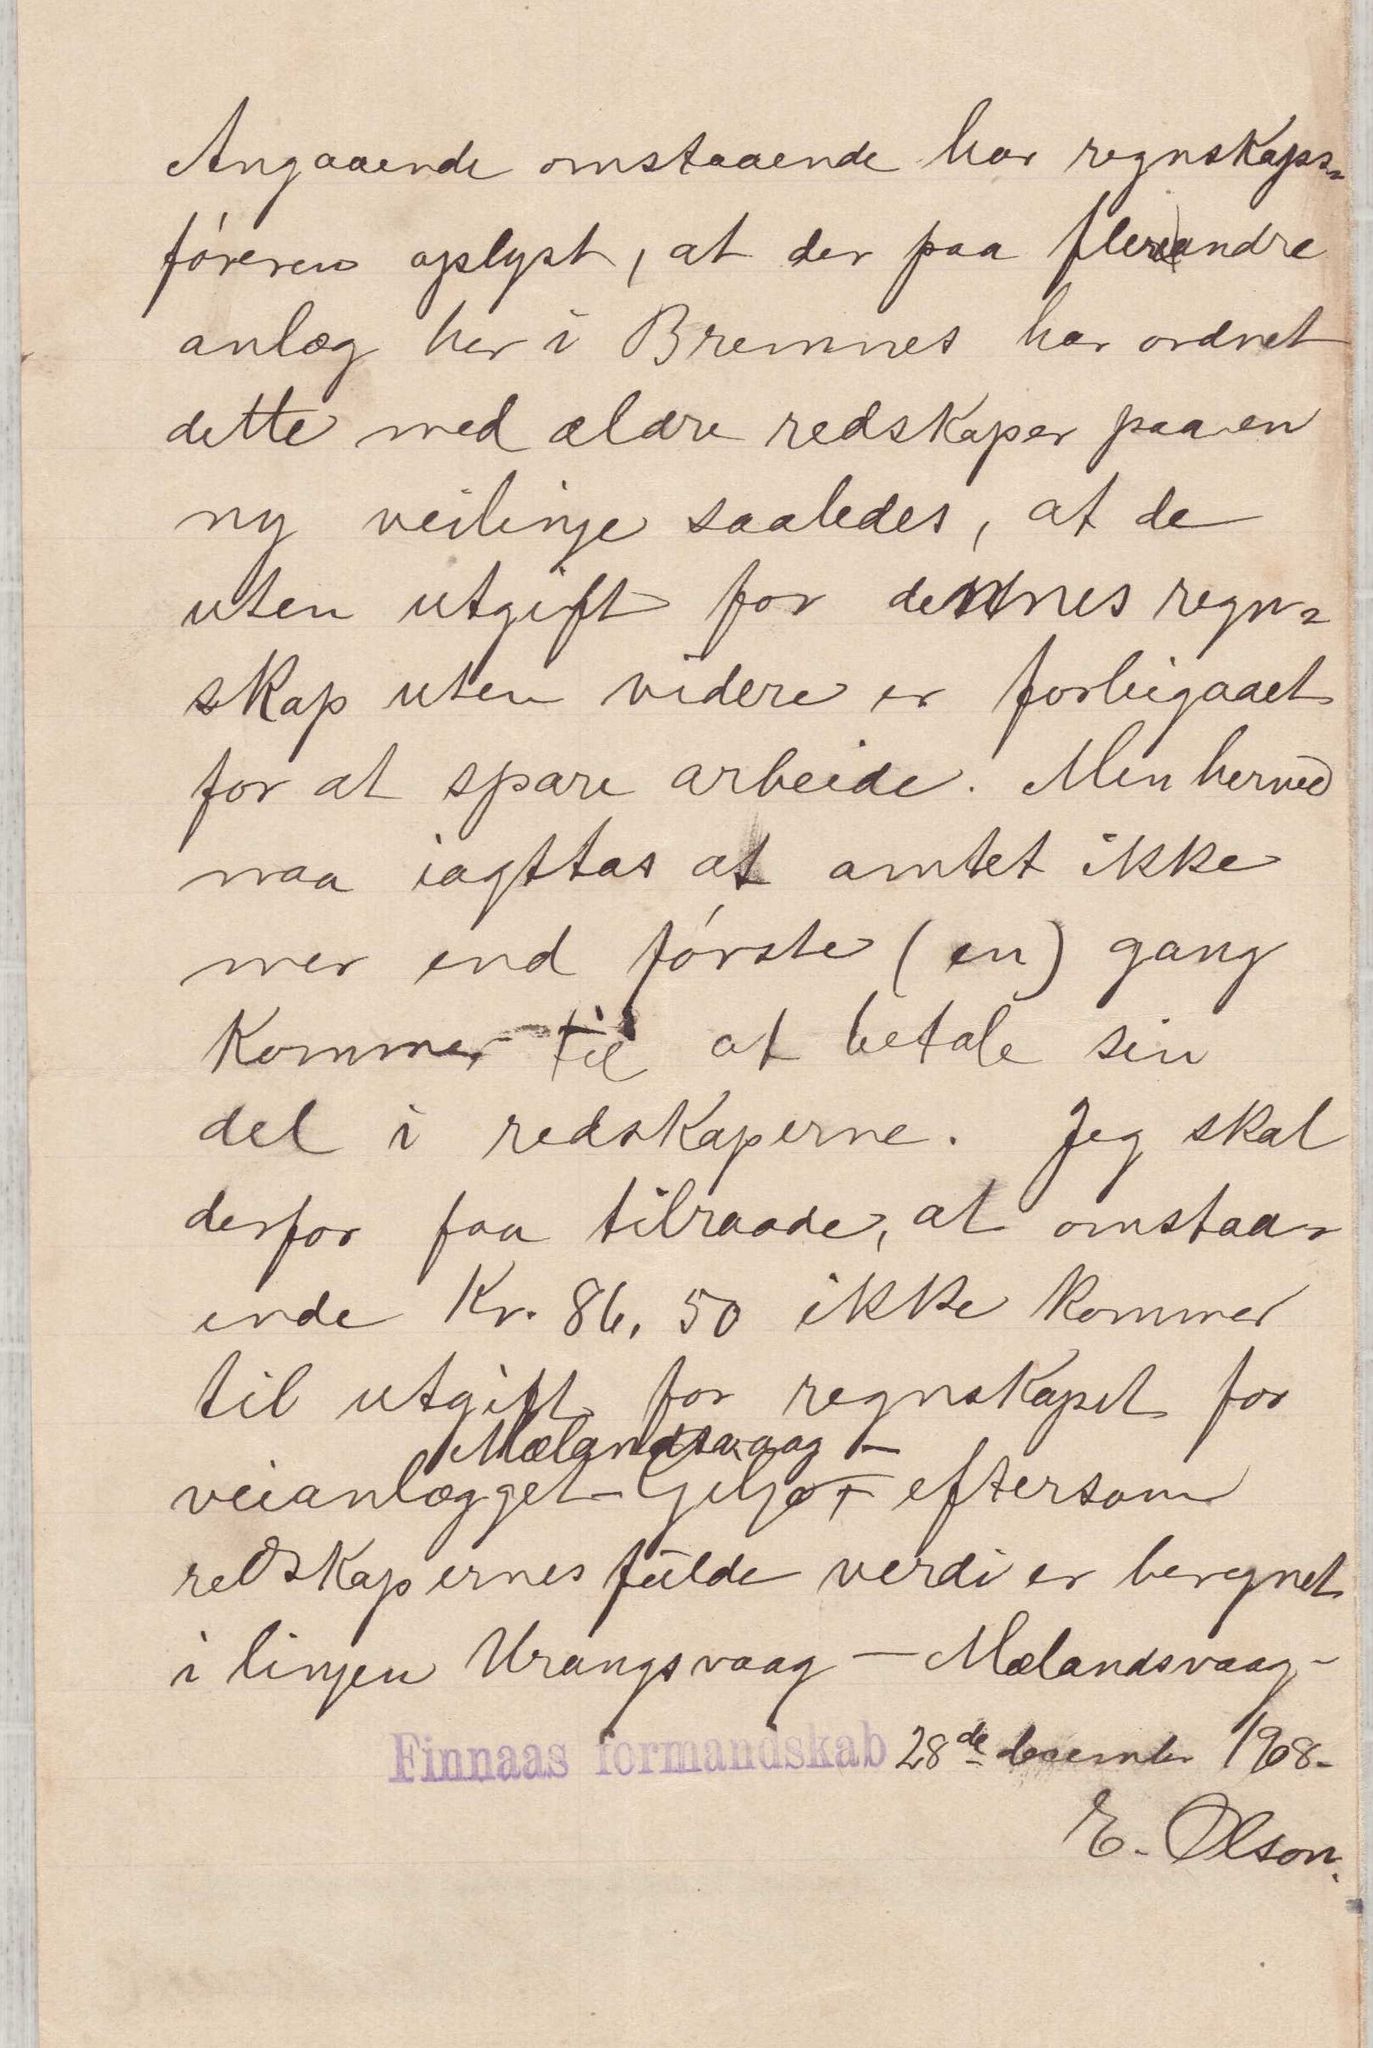 Angaaende omstaaende har regnskaps-
føreren oplyst, at der paa flere andre
anlæg her i Bremnes har ordnet
dette med ældre redskaper paa en
ny veilinje saaledes, at de
uten utgift for dennes regn-
skap uten videre er forbigaaet
for at spare arbeide. Men herved
maa iagttas at amtet ikke
mer end første (en) gang
kommer til at betale sin
del i redskaperne. Jeg skal
derfor faa tilraade, at omstaa-
ende Kr. 86,50 ikke kommer
til utgift for regnskapet for
Mælandsvaag -
veianlægget - Giljo - eftersom
redskapernes fulde verdi er beregnet
i linjen Urangsvaag - Mælandsvaag -
Finnaas formandskab 28de december 1908.
E. Olson.